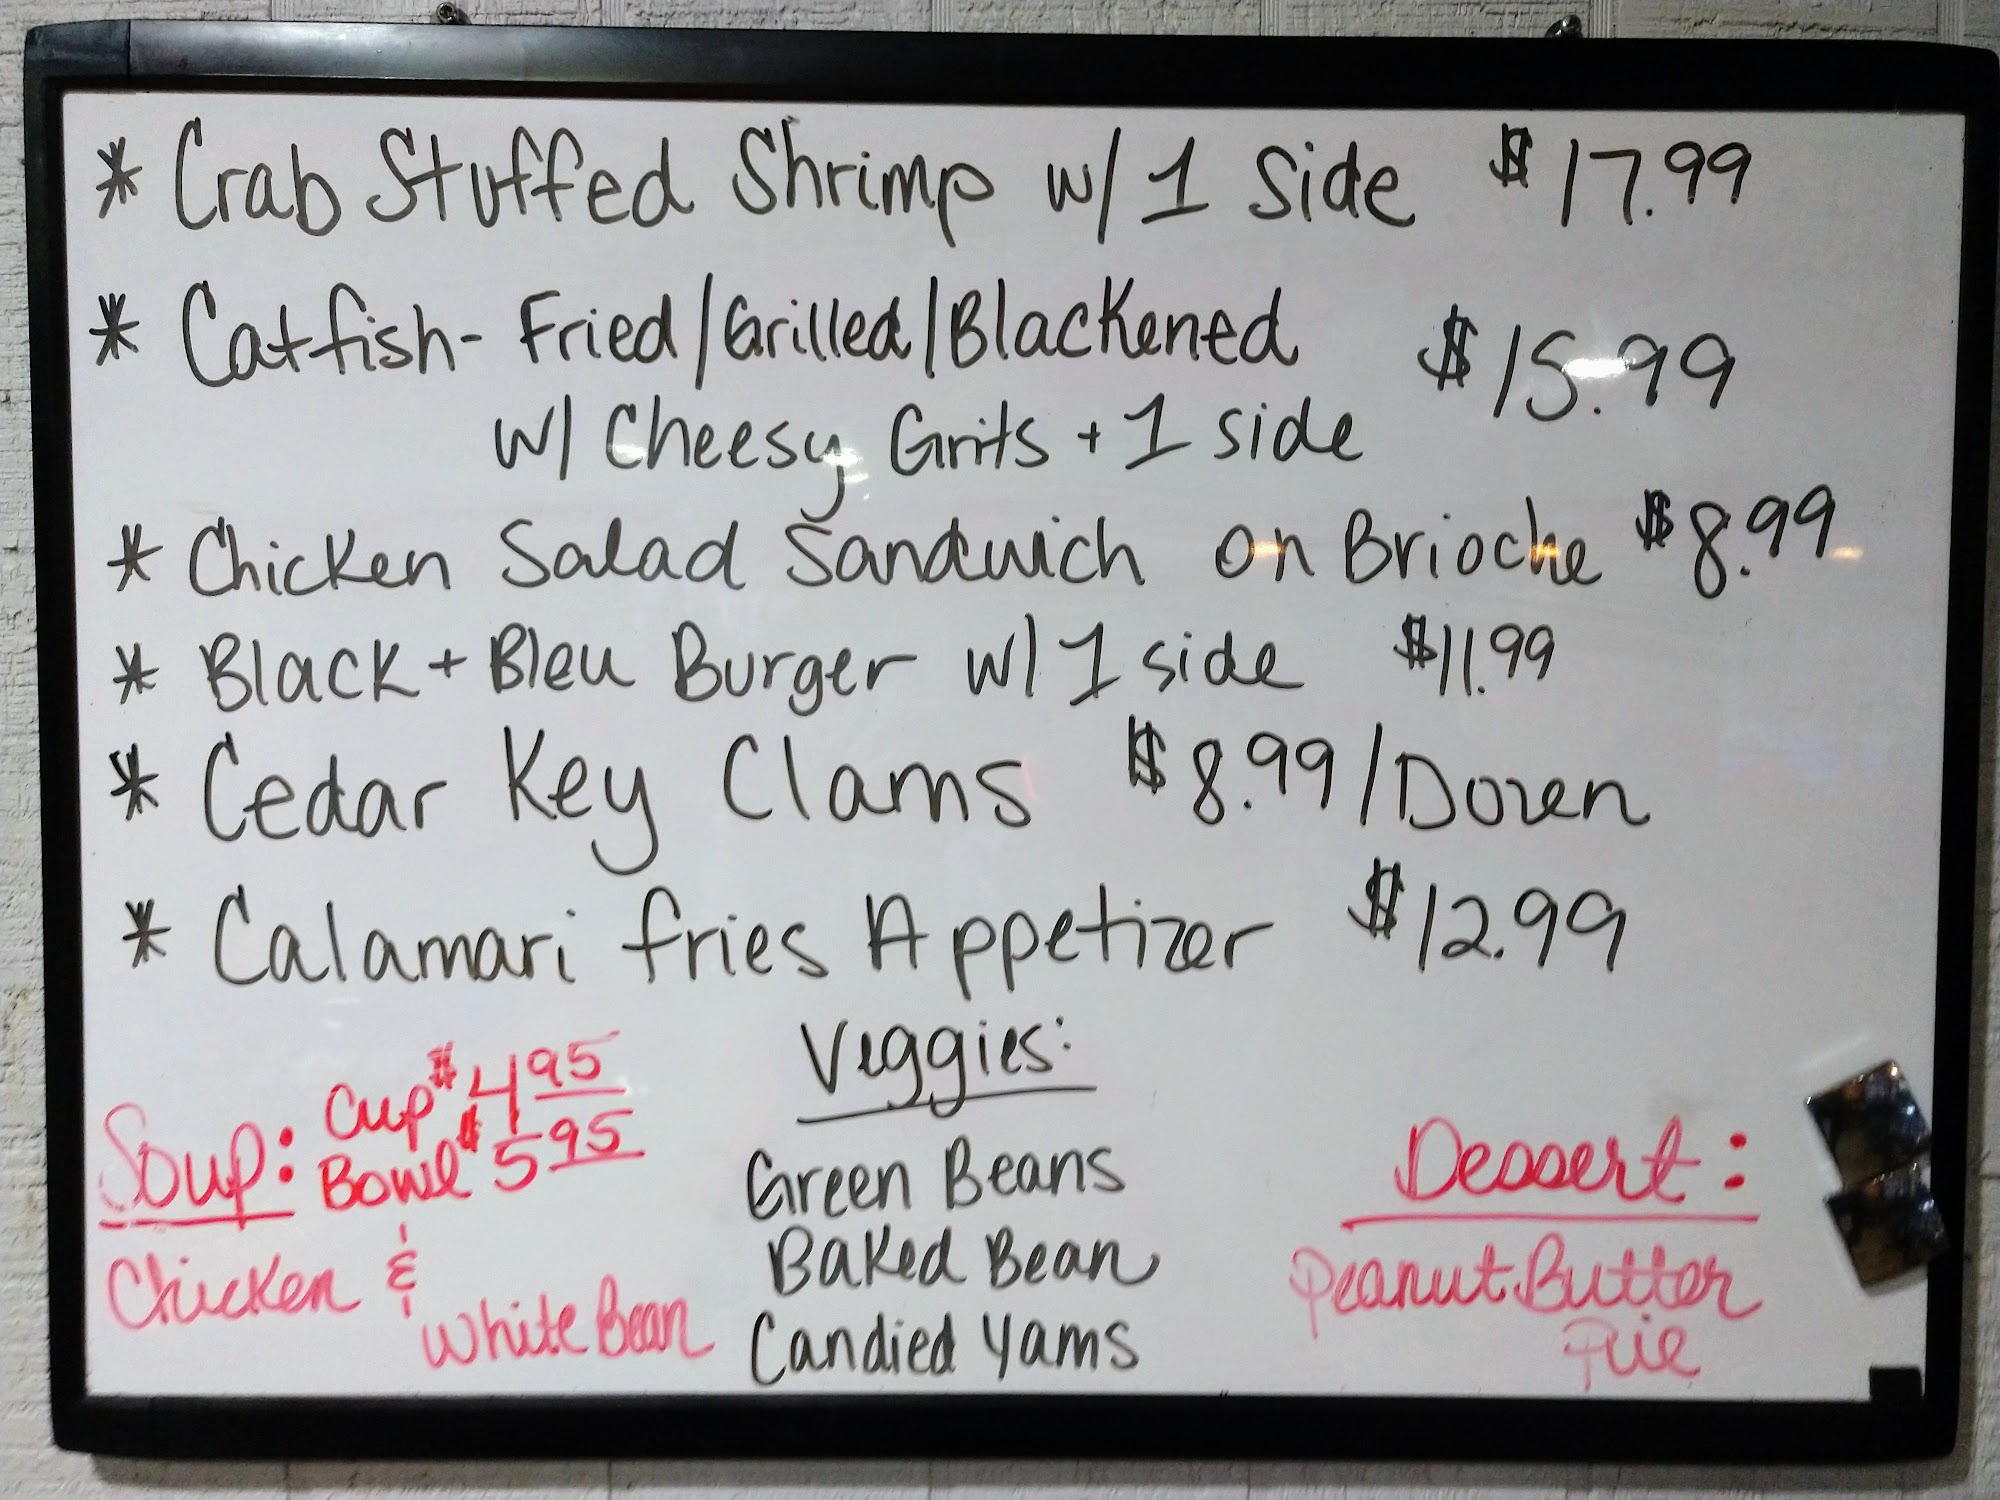 * Crab Stuffed Shrimp w/ 1 Side $17.99
* Catfish- Fried/Grilled/Blackened $15.99
w/ Cheesy Grits + 1 side
* Chicken Salad Sandwich on Brioche $8.99
* Black + Bleu Burger w/ 1 side $11.99
* Cedar Key Clams $8.99/Dozen
* Calamari fries Appetizer $12.99
Soup: Cup $4.95
Bowl $5.95
Chicken &
White Bean
Veggies:
Green Beans
Baked Bean
Candied Yams
Dessert:
Peanut Butter
Pie